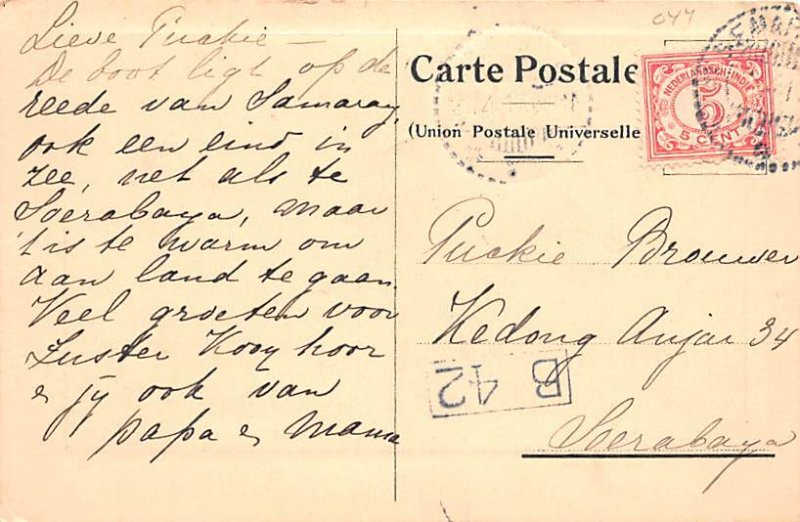 Lieve Puckie —
De boot ligt op de
reede van Samarag,
ook een eind in
zee, net als te
Soerabaya, maar
't is te warm om
aan land te gaan.
Veel groeten voor
Zuster Kooy hoor
& jy ook van
papa & Mama
044
Carte Postale
(Union Postale Universelle
NEDERLANDSCH-INDIE
5
5 CENT
Puckie Brouwer
Kedong Anjar 34
B 42
Soerabaya